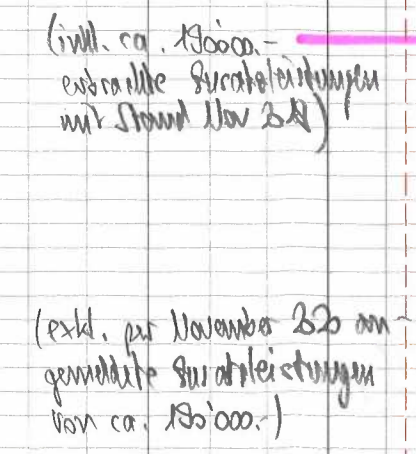 (inkl. ca. 190'000.-
erbrachte Zusatzleistungen
mit Stand Nov
(exkl. per November 2020 an-
gemeldete Zusatzleistungen
von ca. 190'000.-)